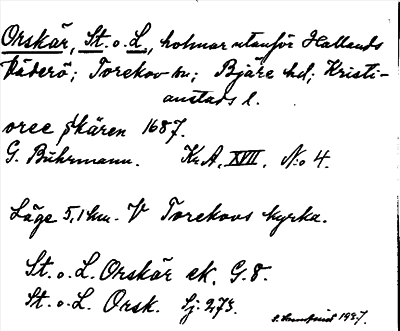 Orskär, St. o. L., holmar utanför Hallands
Väderö; Torekov sn; Bjäre hd; Kristi-
anstads l.
oree skären 1687.
G. Buhrmann. KrA, XVII, No 4.
Läge 5,1 km. V Torekovs kyrka.
St. o. L. Orskär ek. G. 8.
St. o. L. Orsk. Sj. 273.
1937.